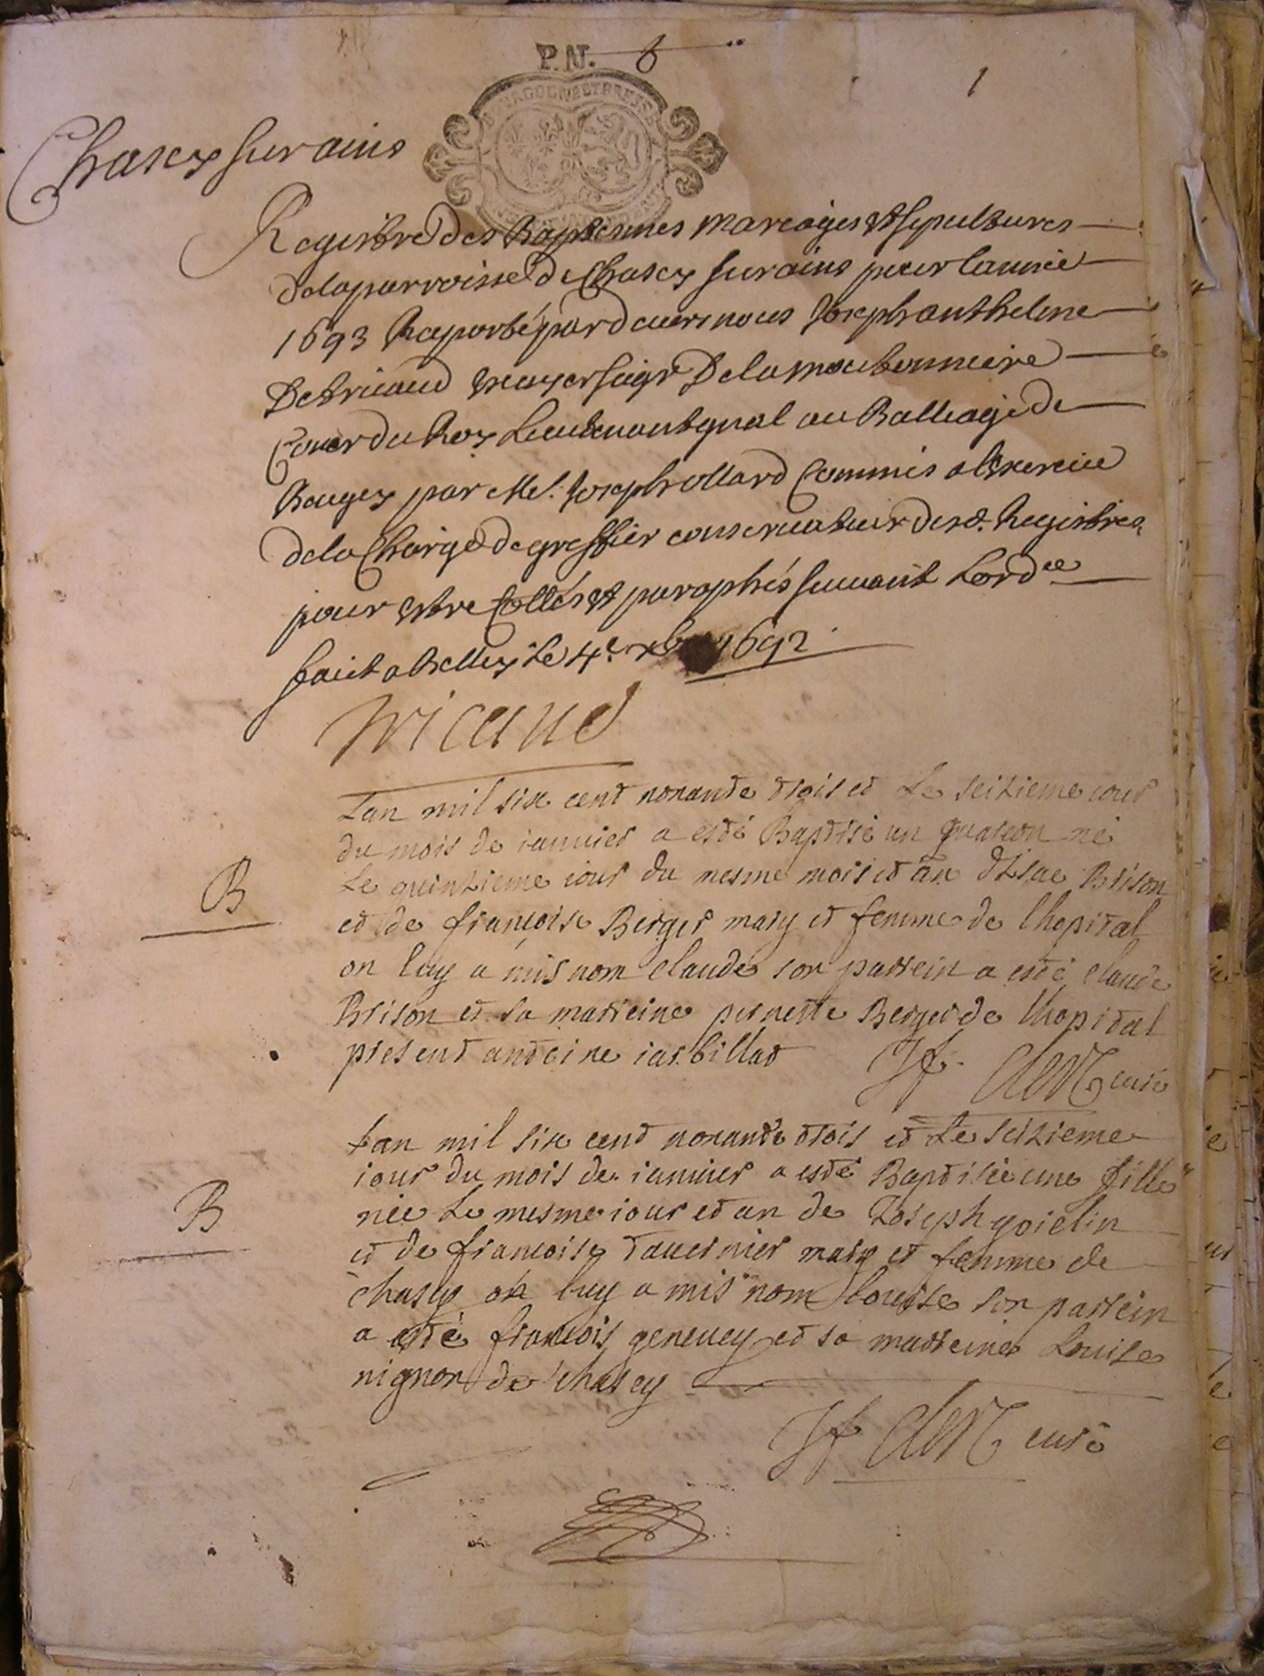 P.N. 6
1
Chasey sur ains
BOURGOGNE ET BRESSE
Registre des Baptesmes mariages et sepultures
de la parroisse de Chasey sur ains pour l'année
1693 Raporté par devers nous Joseph anthelme
De tricaud escuyer seigr De la moutonniere
Coner du Roy Lieutenant gnal au Balliage de
Beugey par Me. Joseph ollard Commis a l'exercice
de la Charge de greffier conservateur desd. Registres
pour estre Cottés et paraphés suivant Lordce
faict a Belley Le 4e xbre 1692.
tricaud
Lan mil six cent nonante trois et Le seizieme iour
du mois de ianvier a esté Baptisé un guarcon né
Le quinzieme iour du mesme mois et an d'Isac Brison
et de francoise Berger mary et femme de lhopital
on luy a mis nom claude son parrein a esté claude
Brison et sa marreine pernette Berger de lhopital
present antoine iarbillat Jf. clerc curé
B
Lan mil six cent nonante trois et Le seizieme
iour du mois de ianvier a esté Baptisée une fille
née Le mesme iour et an de Joseph goielin
et de francoise tavernier mary et femme de
chasey on luy a mis nom louise son parrein
a esté francois genevey et sa marreine Louise
nignon de chasey
B
Jf clerc curé